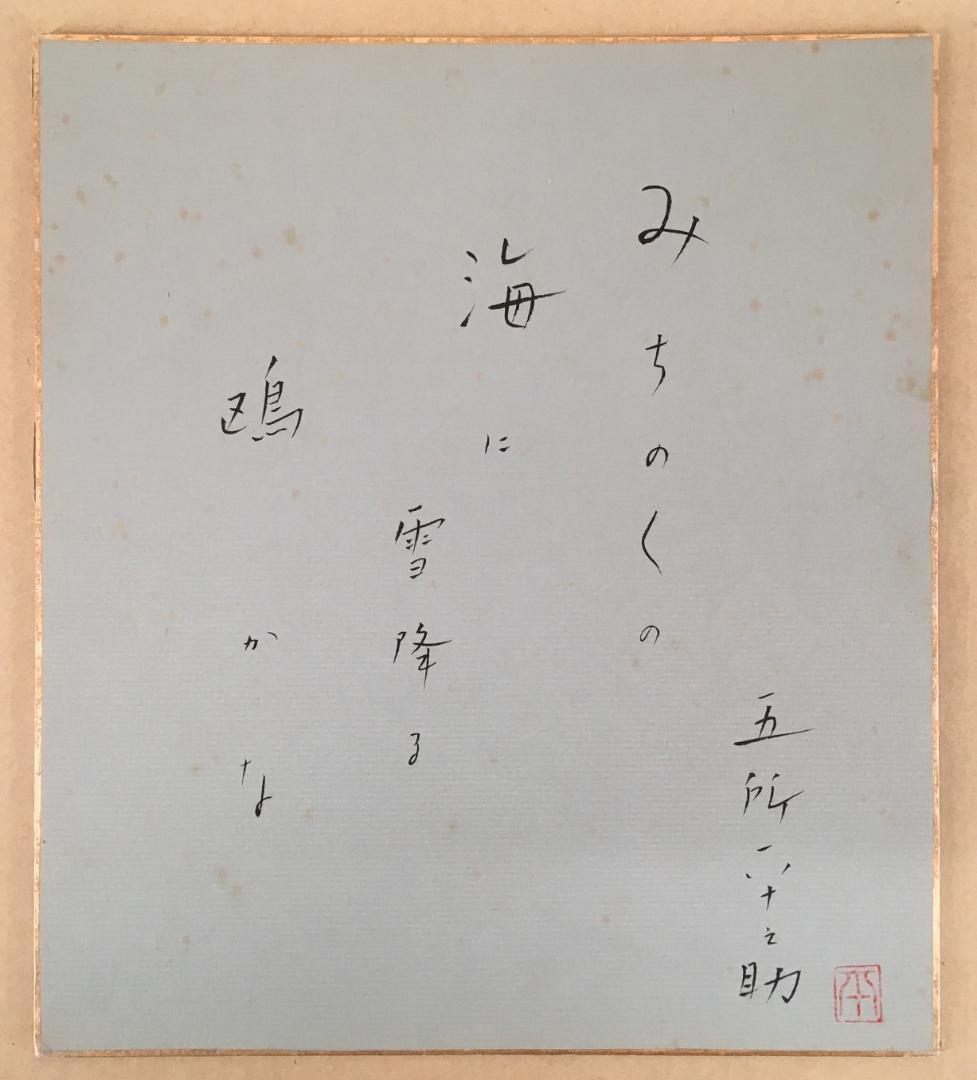 みちのくの
海に
雪降る
鴎かな
五所平之助
平